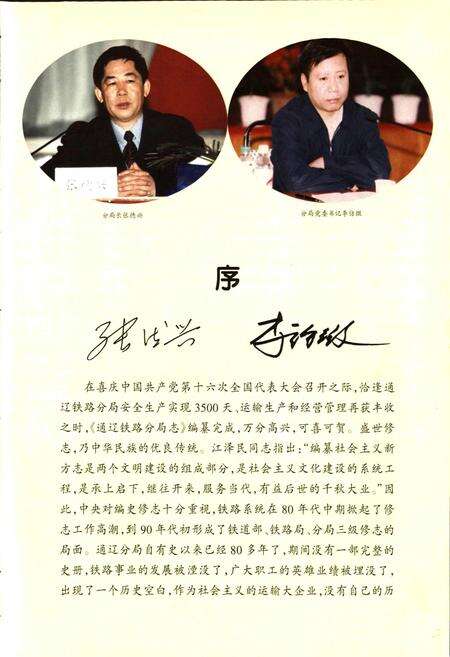 分局长张德兴
分局党委书记李铂馥
序
张德兴
在喜庆中国共产党第十六次全国代表大会召开之际,恰逢通
辽铁路分局安全生产实现3500天、运输生产和经营管理再获丰收
之时,《通辽铁路分局志》编纂完成,万分高兴,可喜可贺。盛世修
志,乃中华民族的优良传统。江泽民同志指出:“编纂社会主义新
方志是两个文明建设的组成部分,是社会主义文化建设的系统工
程,是承上启下,继往开来,服务当代,有益后世的千秋大业。”因
此,中央对编史修志十分重视,铁路系统在80年代中期掀起了修
志工作高潮,到90年代初形成了铁道部、铁路局、分局三级修志的
局面。通辽分局自有史以来已经80多年了,期间没有一部完整的
史册,铁路事业的发展被湮没了,广大职工的英雄业绩被埋没了,
出现了一个历史空白,作为社会主义的运输大企业,没有自己的历